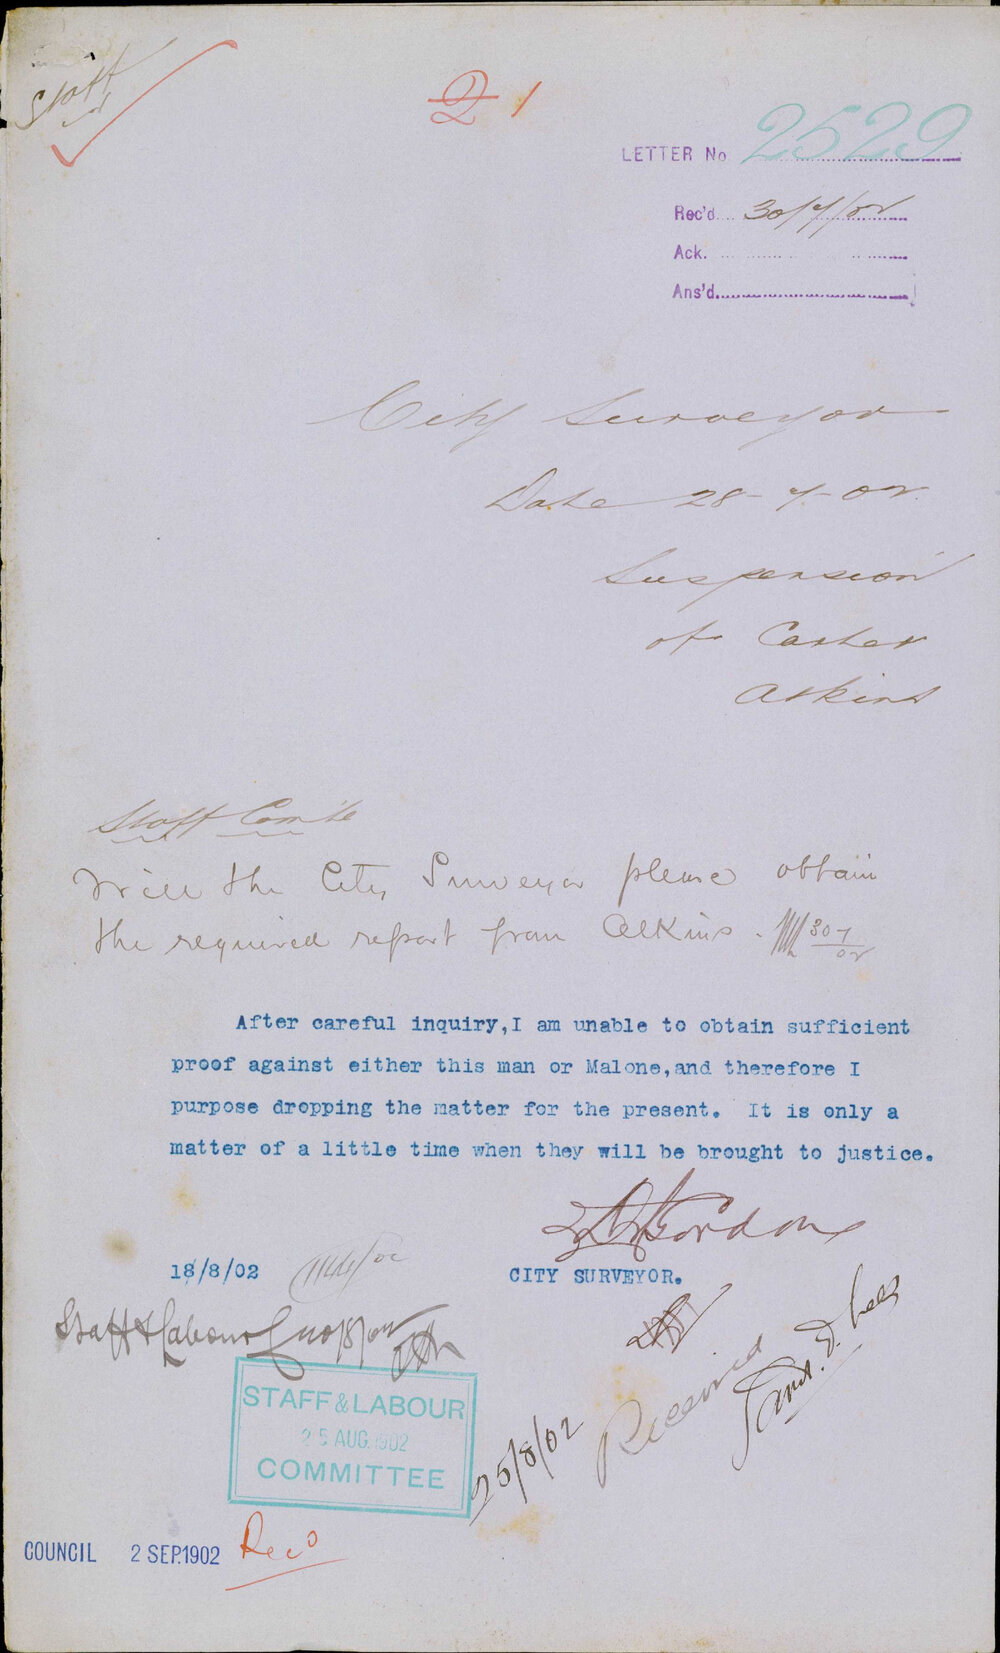 Staff
2 1
LETTER No 2529
Rec'd 30/7/02
Ack.
Ans'd
City Surveyor
Date 28-7-02
Suspension
of Carter
Atkins
Staff Com'te
Will the City Surveyor please obtain
the required report from Atkins. 30/7/02
After careful inquiry, I am unable to obtain sufficient
proof against either this man or Malone, and therefore I
purpose dropping the matter for the present. It is only a
matter of a little time when they will be brought to justice.
Gordon
18/8/02
CITY SURVEYOR.
Staff & Labour
STAFF & LABOUR
25 AUG. 1902
COMMITTEE
25/8/02
Received
COUNCIL 2 SEP. 1902 Rec'd